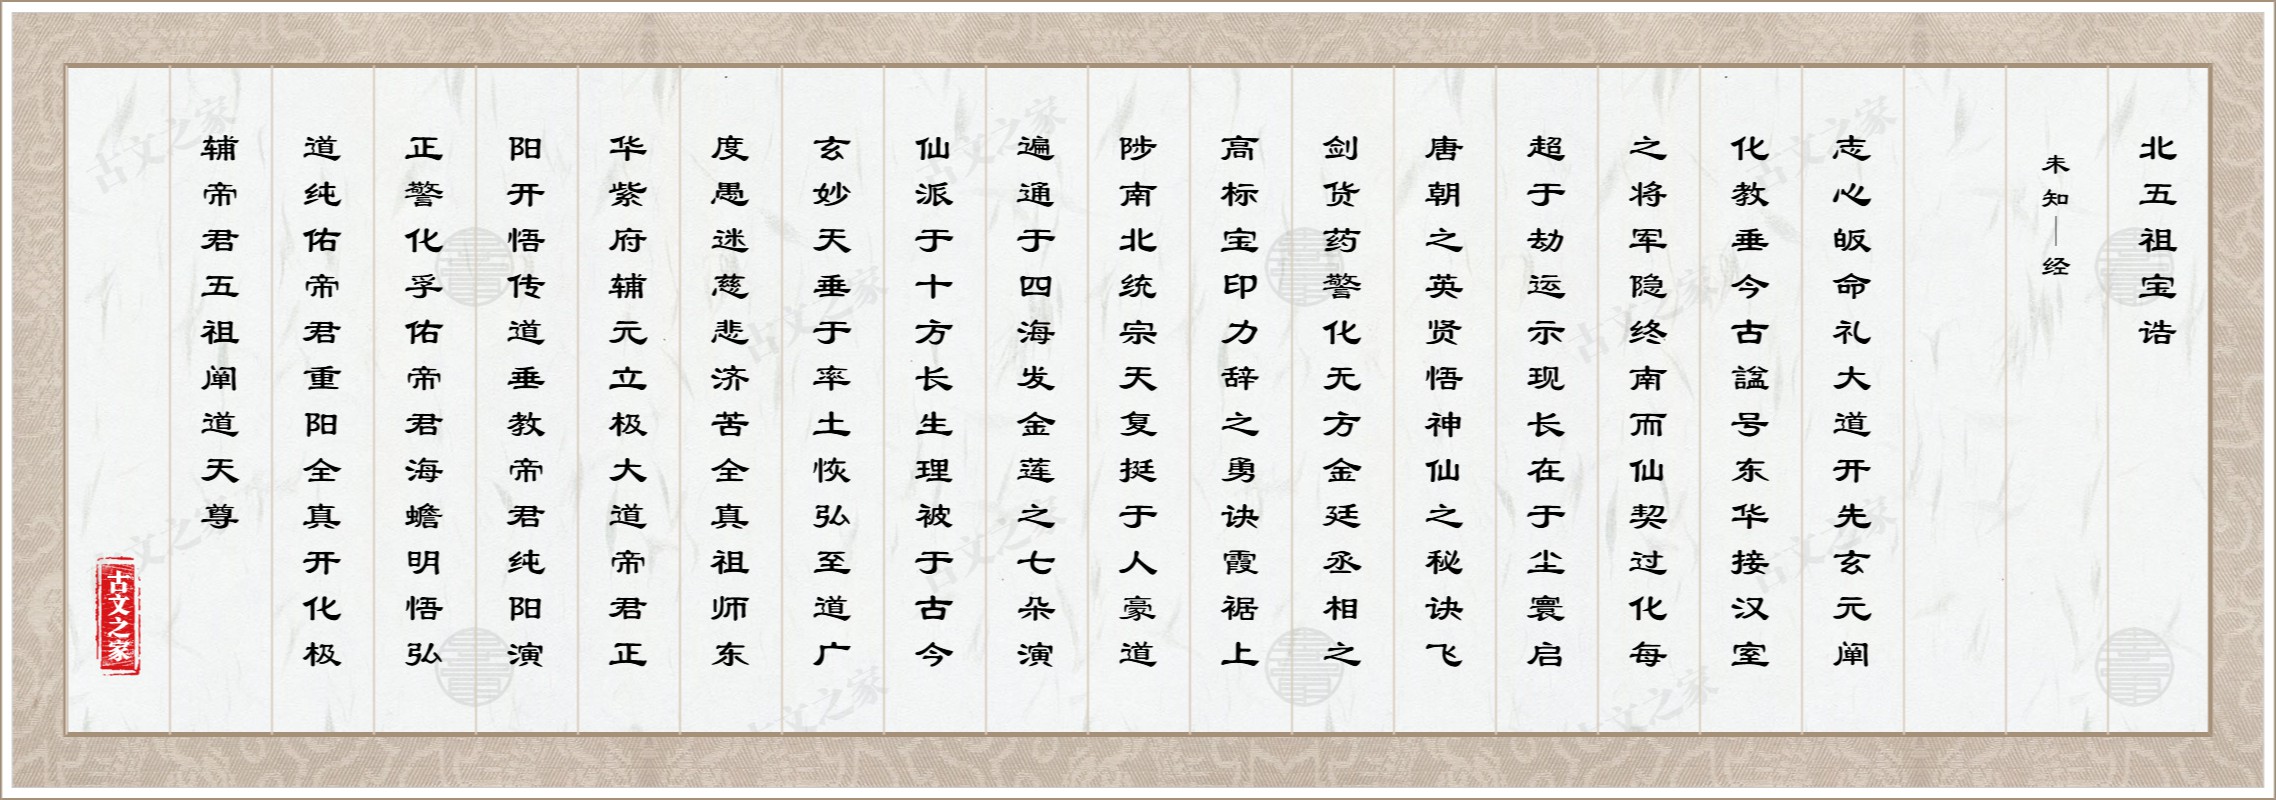 北五祖宝诰
未知—经
志心皈命礼大道开先玄元阐
化教垂今古諡号东华接汉室
之将军隐终南而仙契过化每
超于劫运示现长在于尘寰启
唐朝之英贤悟神仙之秘诀飞
剑货药警化无方金廷丞相之
高标宝印力辞之勇诀霞裾上
陟南北统宗天复挺于人豪道
遍通于四海发金莲之七朵演
仙派于十方长生理被于古今
玄妙天垂于率土恢弘至道广
度愚迷慈悲济苦全真祖师东
华紫府辅元立极大道帝君正
阳开悟传道垂教帝君纯阳演
正警化孚佑帝君海蟾明悟弘
道纯佑帝君重阳全真开化极
辅帝君五祖阐道天尊
古文之家